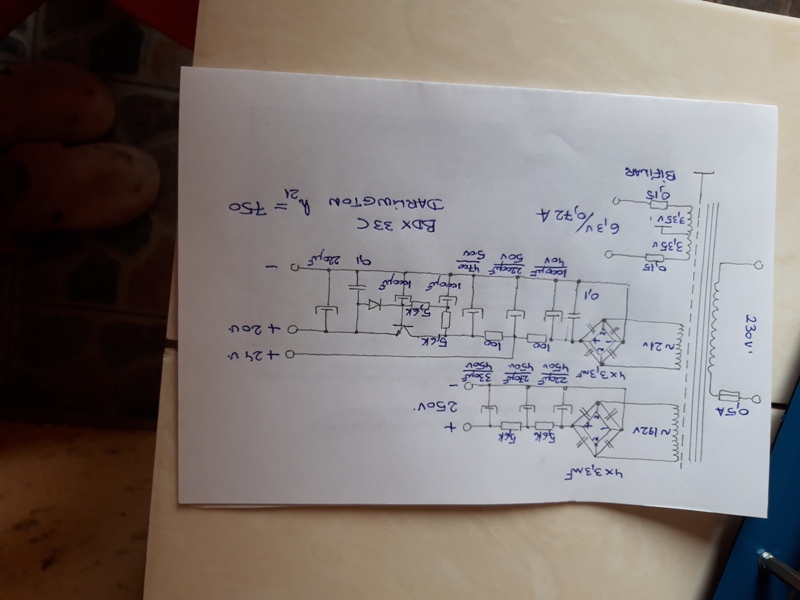 4x3,3nF
0,5A
5,6k
5,6k
+
~192V
250V
220µF
450V
220µF
450V
330µF
450V
-
4x3,3nF
230V
~21V
+24V
100
100
5,6k
+20V
5,6k
0,1
1000µF
40V
2200µF
50V
4700
50V
1000µF
1000µF
0,1
220µF
-
0,15
3,35V
3,35V
0,15
6,3V/0,72A
BIFILAR
BDX 33C
DARLINGTON h21 = 750